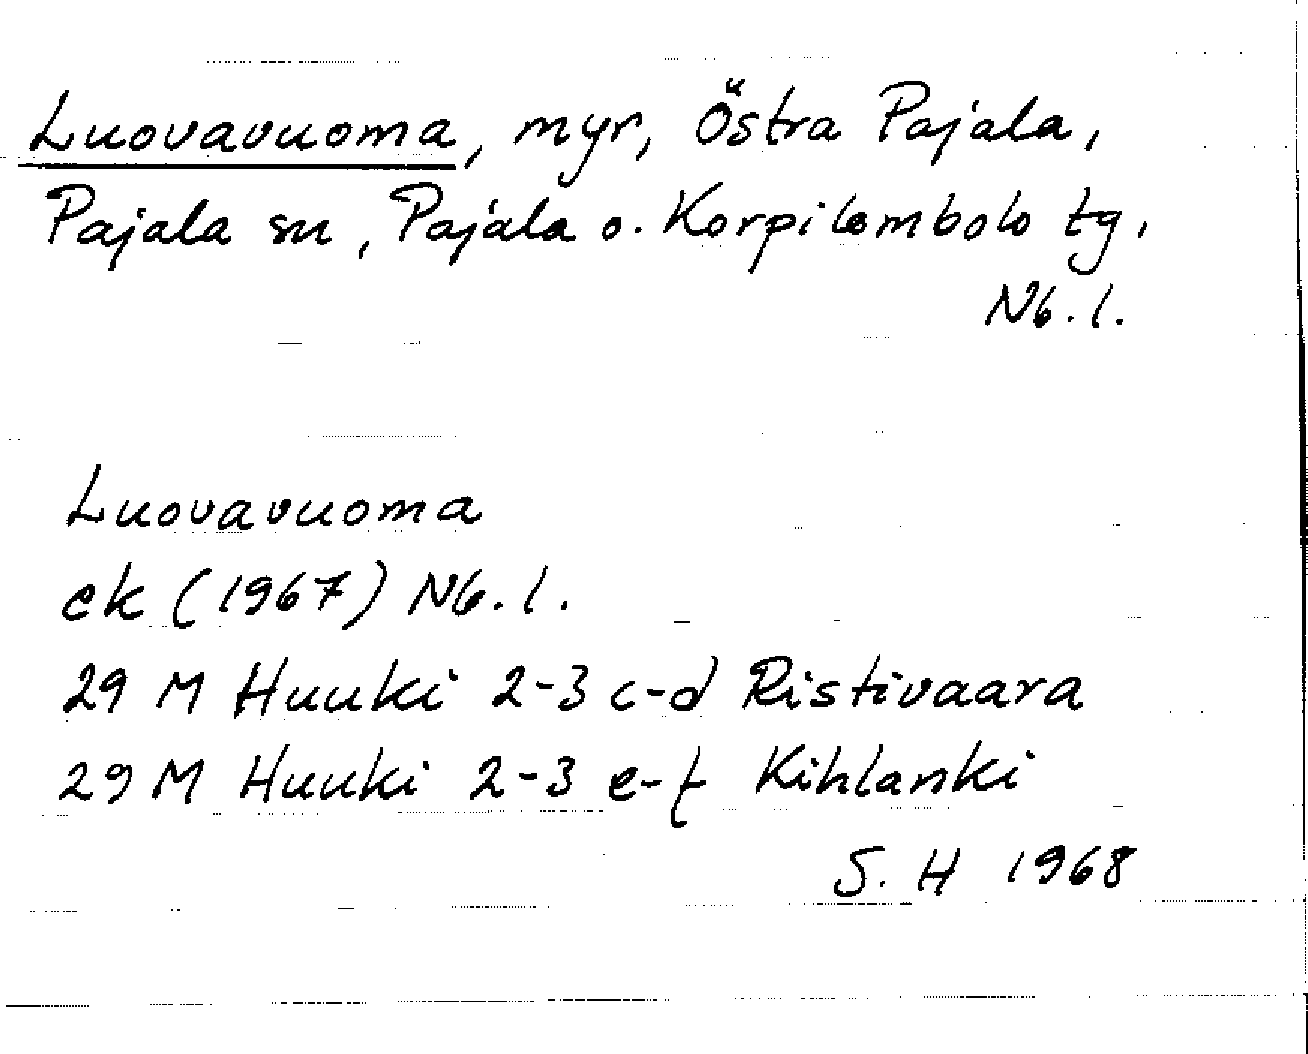 Luovavuoma, myr, Östra Pajala,
Pajala sn, Pajala o. Korpilombolo tg,
Nb. l.
Luovavuoma
ek (1967) Nb. l.
29 M Huuki 2-3 c-d Ristivaara
29 M Huuki 2-3 e-f Kihlanki
S. H 1968